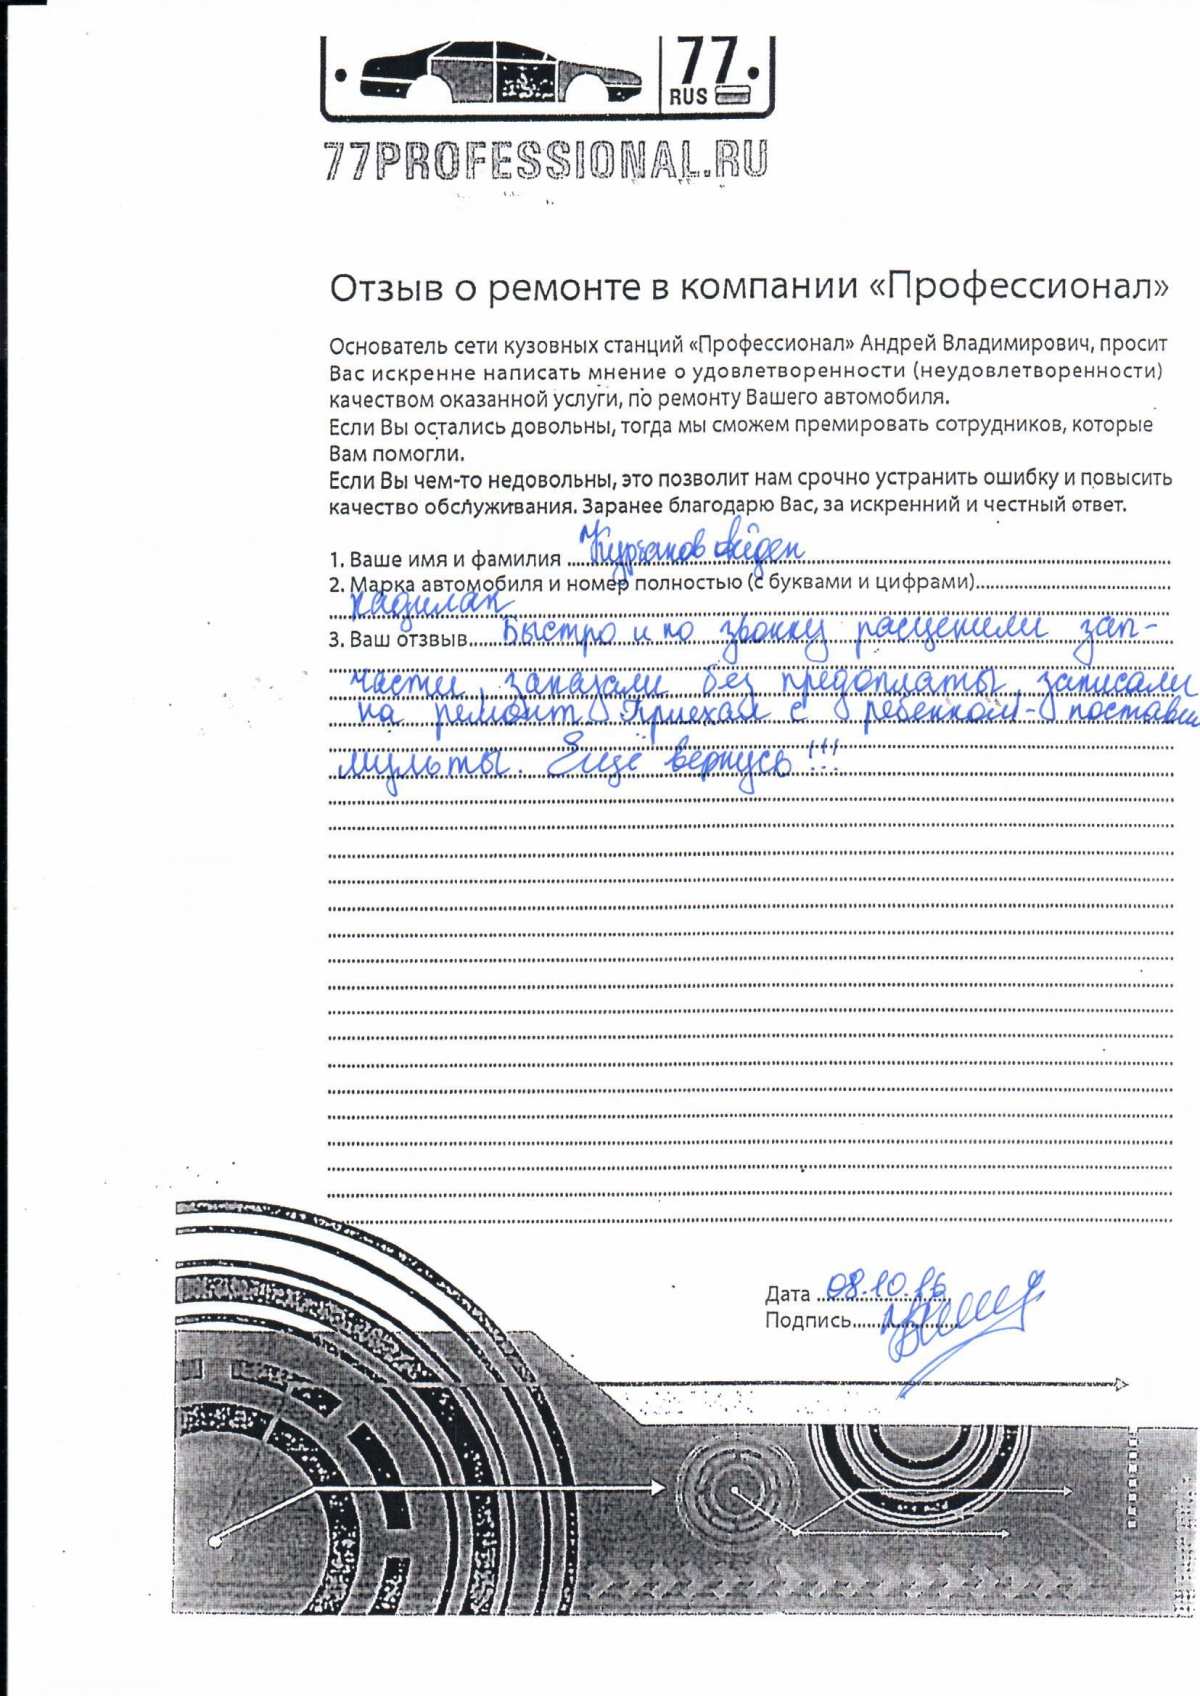 77
RUS
77PROFESSIONAL.RU
Отзыв о ремонте в компании «Профессионал»
Основатель сети кузовных станций «Профессионал» Андрей Владимирович, просит
Вас искренне написать мнение о удовлетворенности (неудовлетворенности)
качеством оказанной услуги, по ремонту Вашего автомобиля.
Если Вы остались довольны, тогда мы сможем премировать сотрудников, которые
Вам помогли.
Если Вы чем-то недовольны, это позволит нам срочно устранить ошибку и повысить
качество обслуживания. Заранее благодарю Вас, за искренний и честный ответ.
1. Ваше имя и фамилия
2. Марка автомобиля и номер полностью (с буквами и цифрами)
кадилак
3. Ваш отзвыв Быстро и по звонку расценили зап-
части, заказали без предоплаты, записали
на ремонт. Приехал с ребенком - поставили
мульты. Еще вернусь!!!
Дата 08.10.16
Подпись